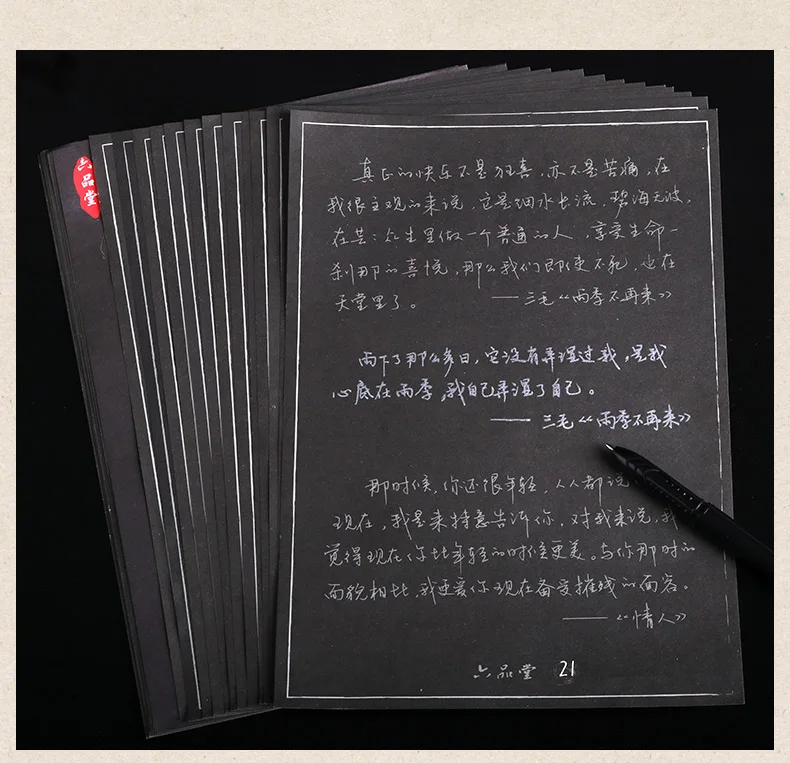 六品堂
真正的快乐不是狂喜,亦不是苦痛,在
我很主观的来说,它是细水长流,碧海无波,
在芸芸众生里做一个普通的人,享受生命一
刹那的喜悦,那么我们即使不死,也在
天堂里了。 ——三毛《雨季不再来》
雨下了那么多日,它没有弄湿过我,是我
心底在雨季,我自己弄湿了自己。
——三毛《雨季不再来》
那时候,你还很年轻,人人都说
现在,我是来特意告诉你,对我来说,我
觉得现在你比年轻的时候更美。与你那时的
面貌相比,我更爱你现在备受摧残的面容。
——《情人》
六品堂 21